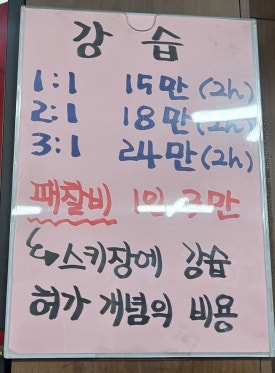 강 습
1:1 15만 (2h)
2:1 18만 (2h)
3:1 24만 (2h)
패찰비 1인 3만
↳스키장에 강습
허가 개념의 비용